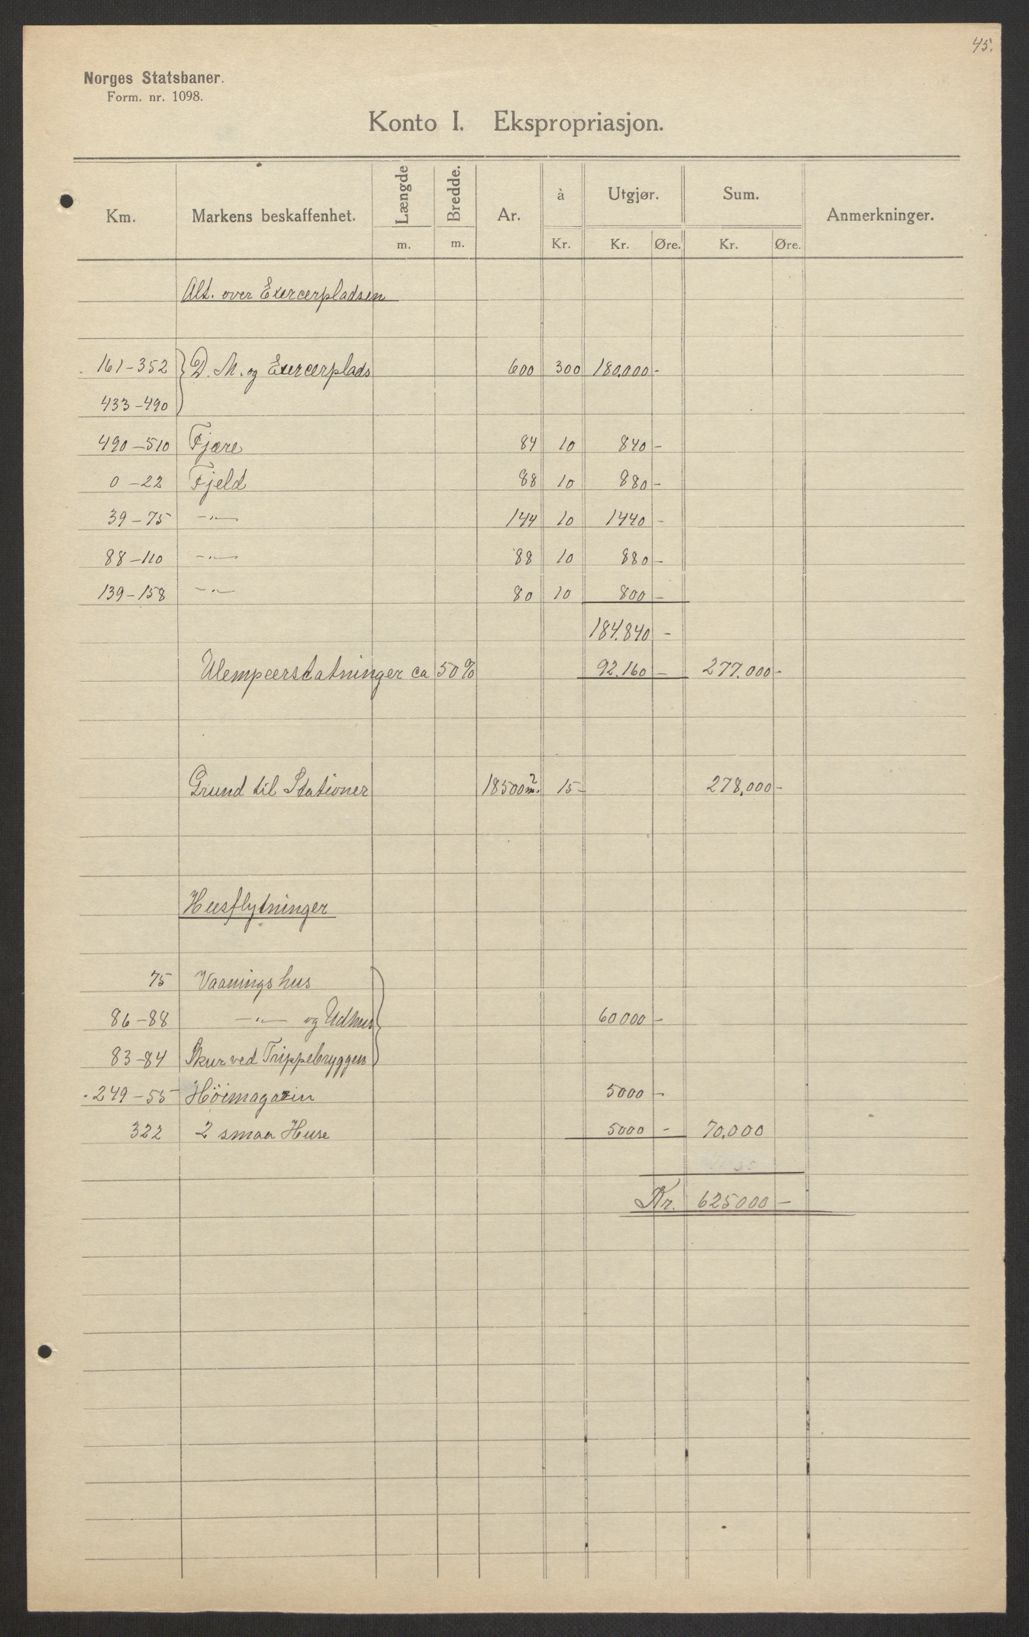 45.
Norges Statsbaner.
Form. nr. 1098.
Konto I. Ekspropriasjon.
Km. Markens beskaffenhet. Længde Bredde. Ar. à Utgjør. Sum. Anmerkninger.
m. m. Kr. Kr. Øre. Kr. Øre.
Alt. over Exercerpladsen
161-352 D. M. og Exercerplads 600 300 180,000 -
433-490
490-510 Fjære 84 10 840 -
0-22 Fjeld 88 10 880 -
39-75 -"- 144 10 1440 -
88-110 -"- 88 10 880 -
139-158 -"- 80 10 800 -
184,840 -
Ulempeerstatninger ca 50% 92,160 - 277,000 -
Grund til Stationer 18500 m². 15- 278,000 -
Husflytninger
75 Vaaningshus
86-88 -"- og Udhus 60000 -
83-84 Skur ved Trippebryggen
249-55 Höimagazin 5000 -
322 2 smaa Huse 5000 - 70,000
Kr. 625000 -